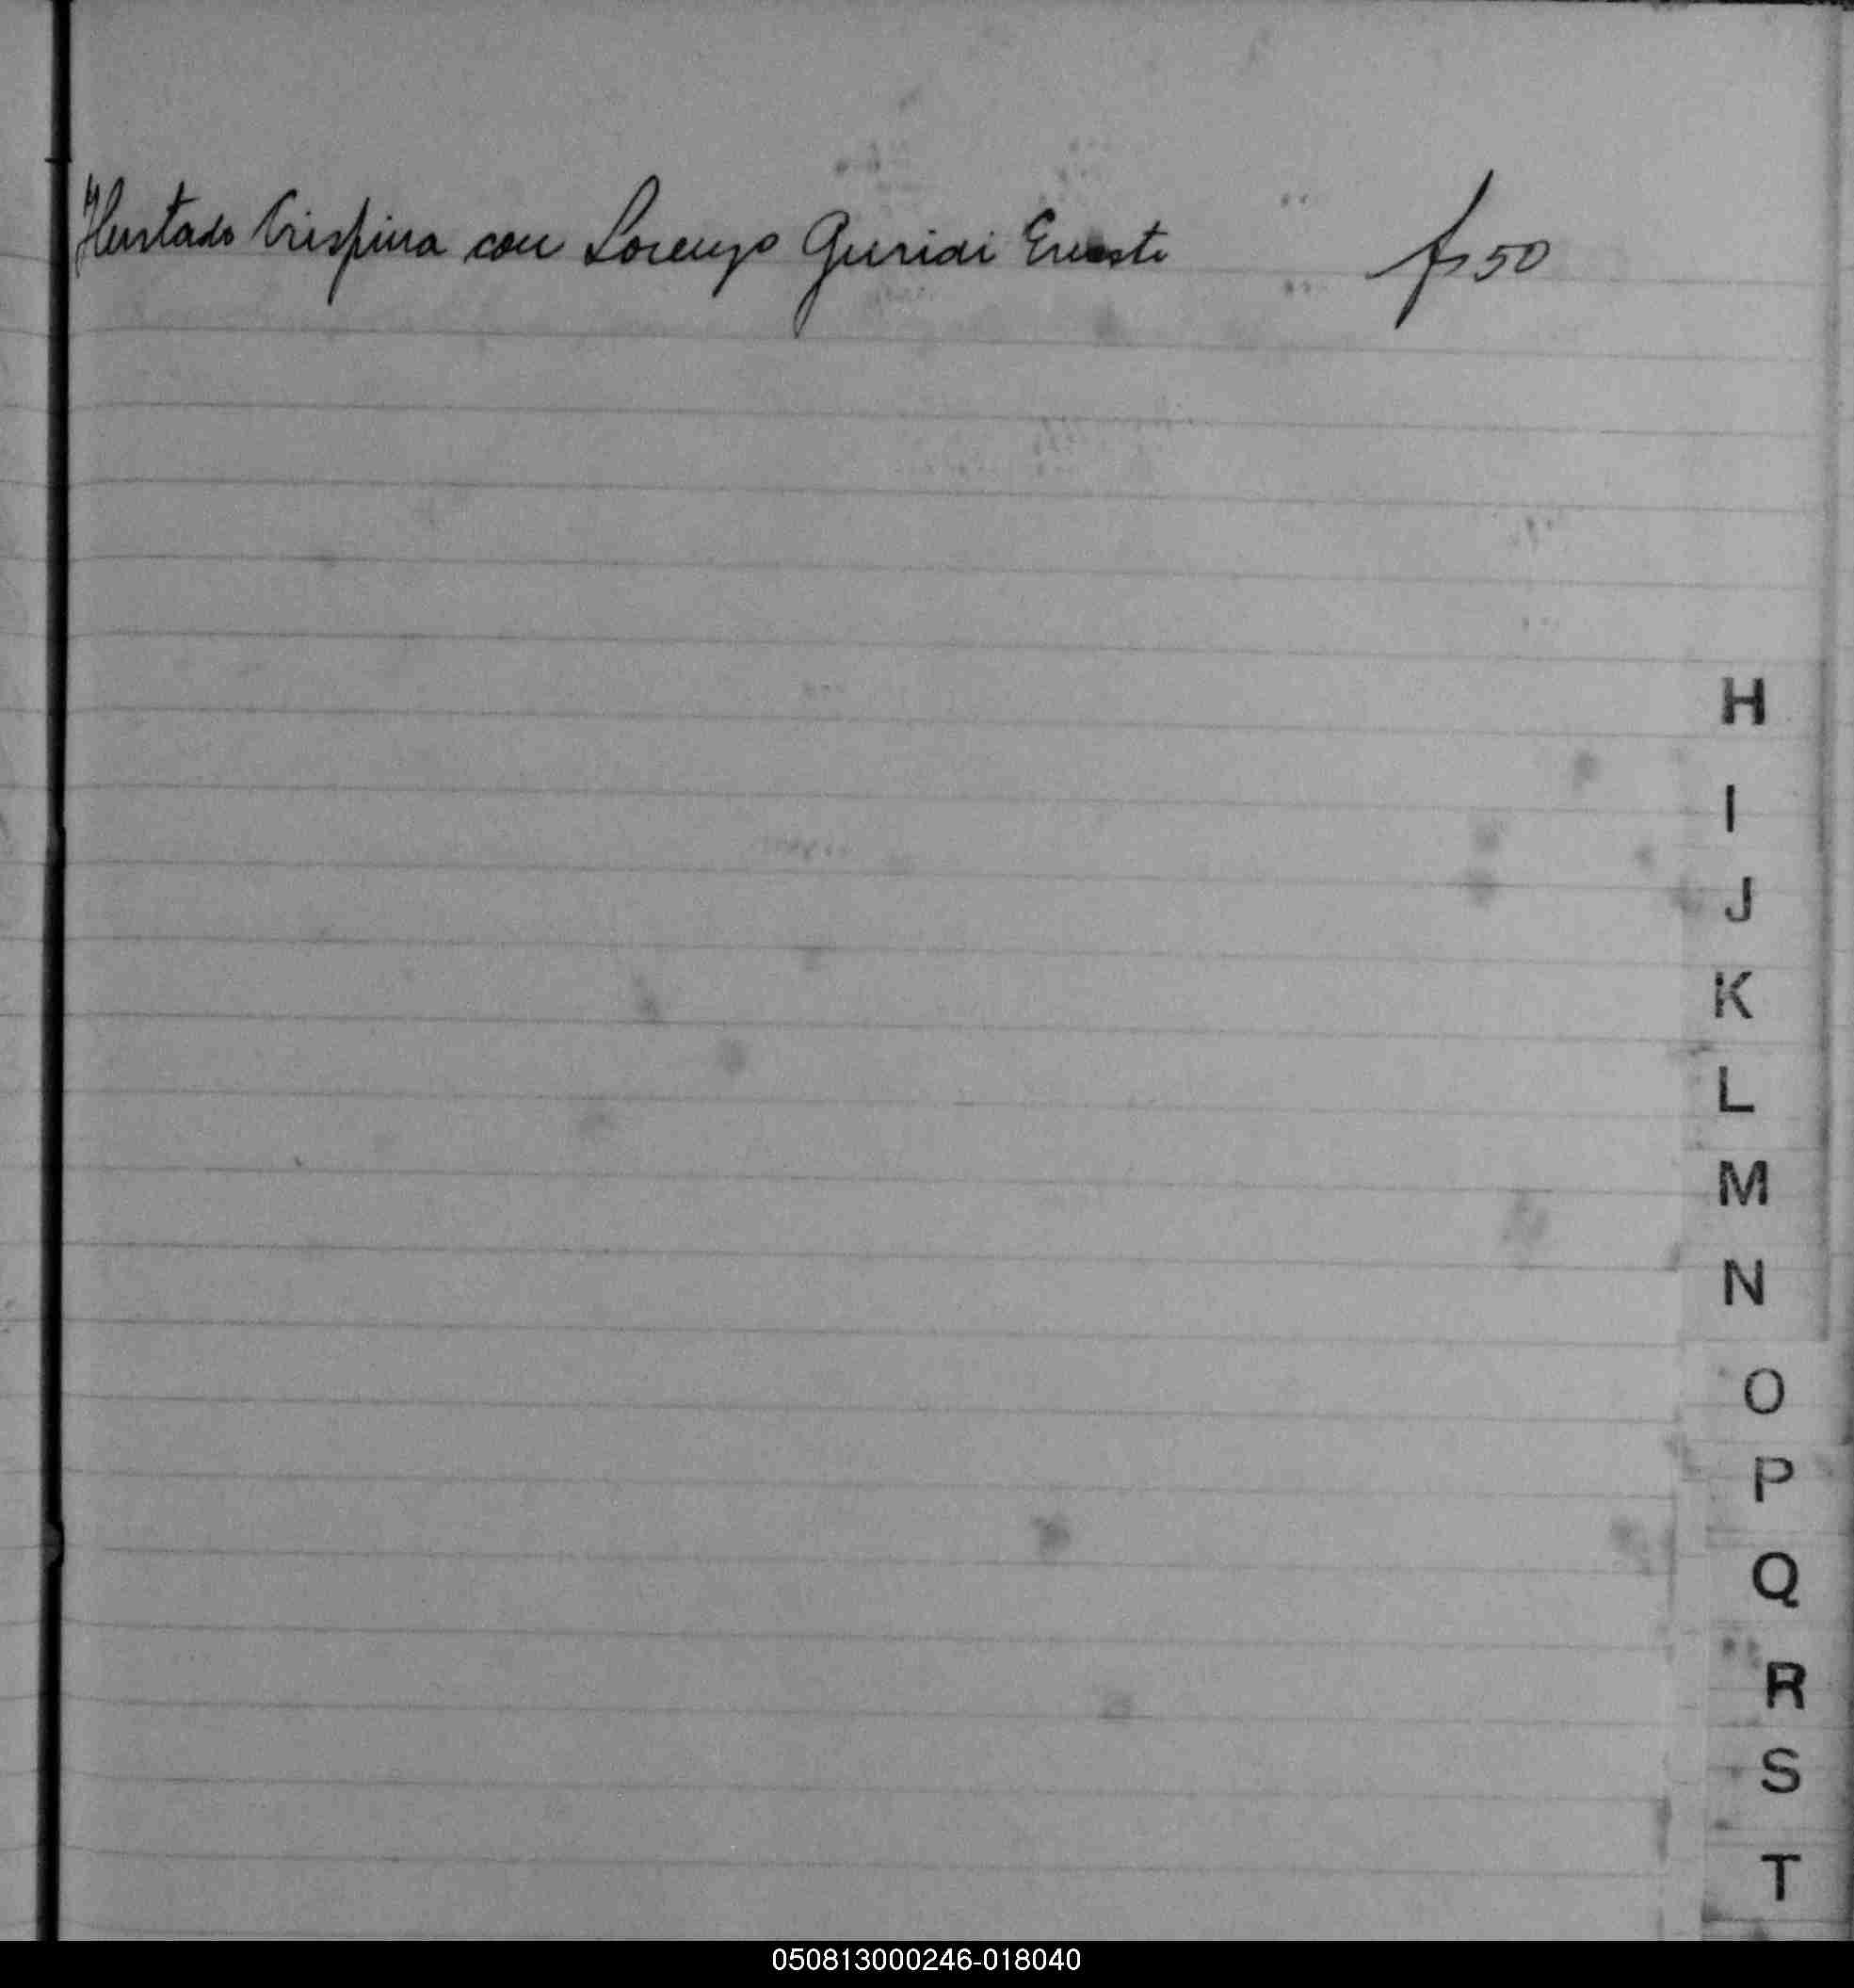 Hurtado Crispina con Lorenzo Guridi Ernesto fs 50
H
I
J
K
L
M
N
O
P
Q
R
S
T
050813000246-018040